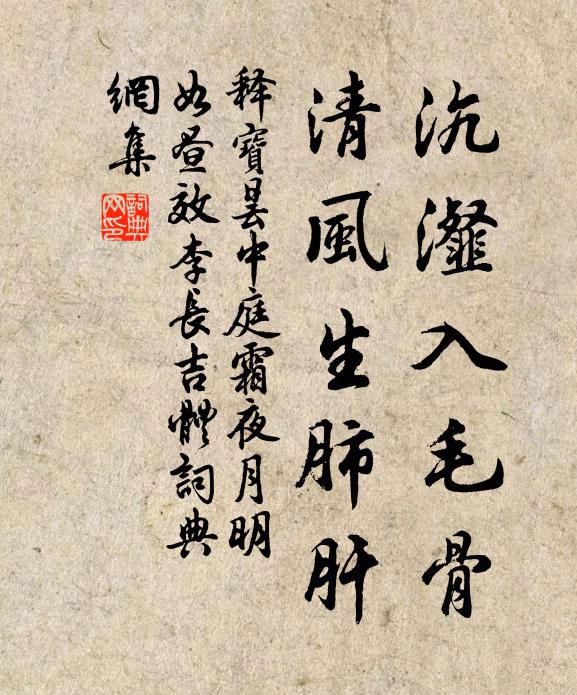 沆瀣入毛骨
清風生肺肝
释寶曇中庭霜夜月明
如昼效李長吉體詞典
網集
詞典網印